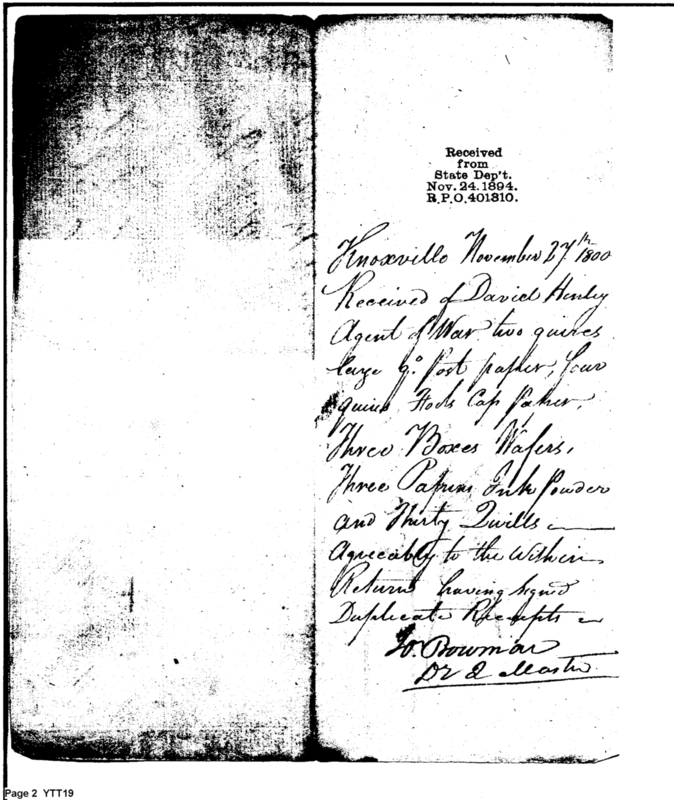 Received
from
State Dep't.
Nov. 24. 1894.
R.P.O. 401310.
Knoxville November 27th 1800
Received of David Henley
Agent of War two quires
large qo. Post paper, four
quires Fools Cap paper,
Three Boxes Wafers,
Three Papers Ink Powder
and Thirty Quills
Agreeably to the Within
Return having signed
Duplicate Receipts
Bowmar
Master
Page 2 YTT19